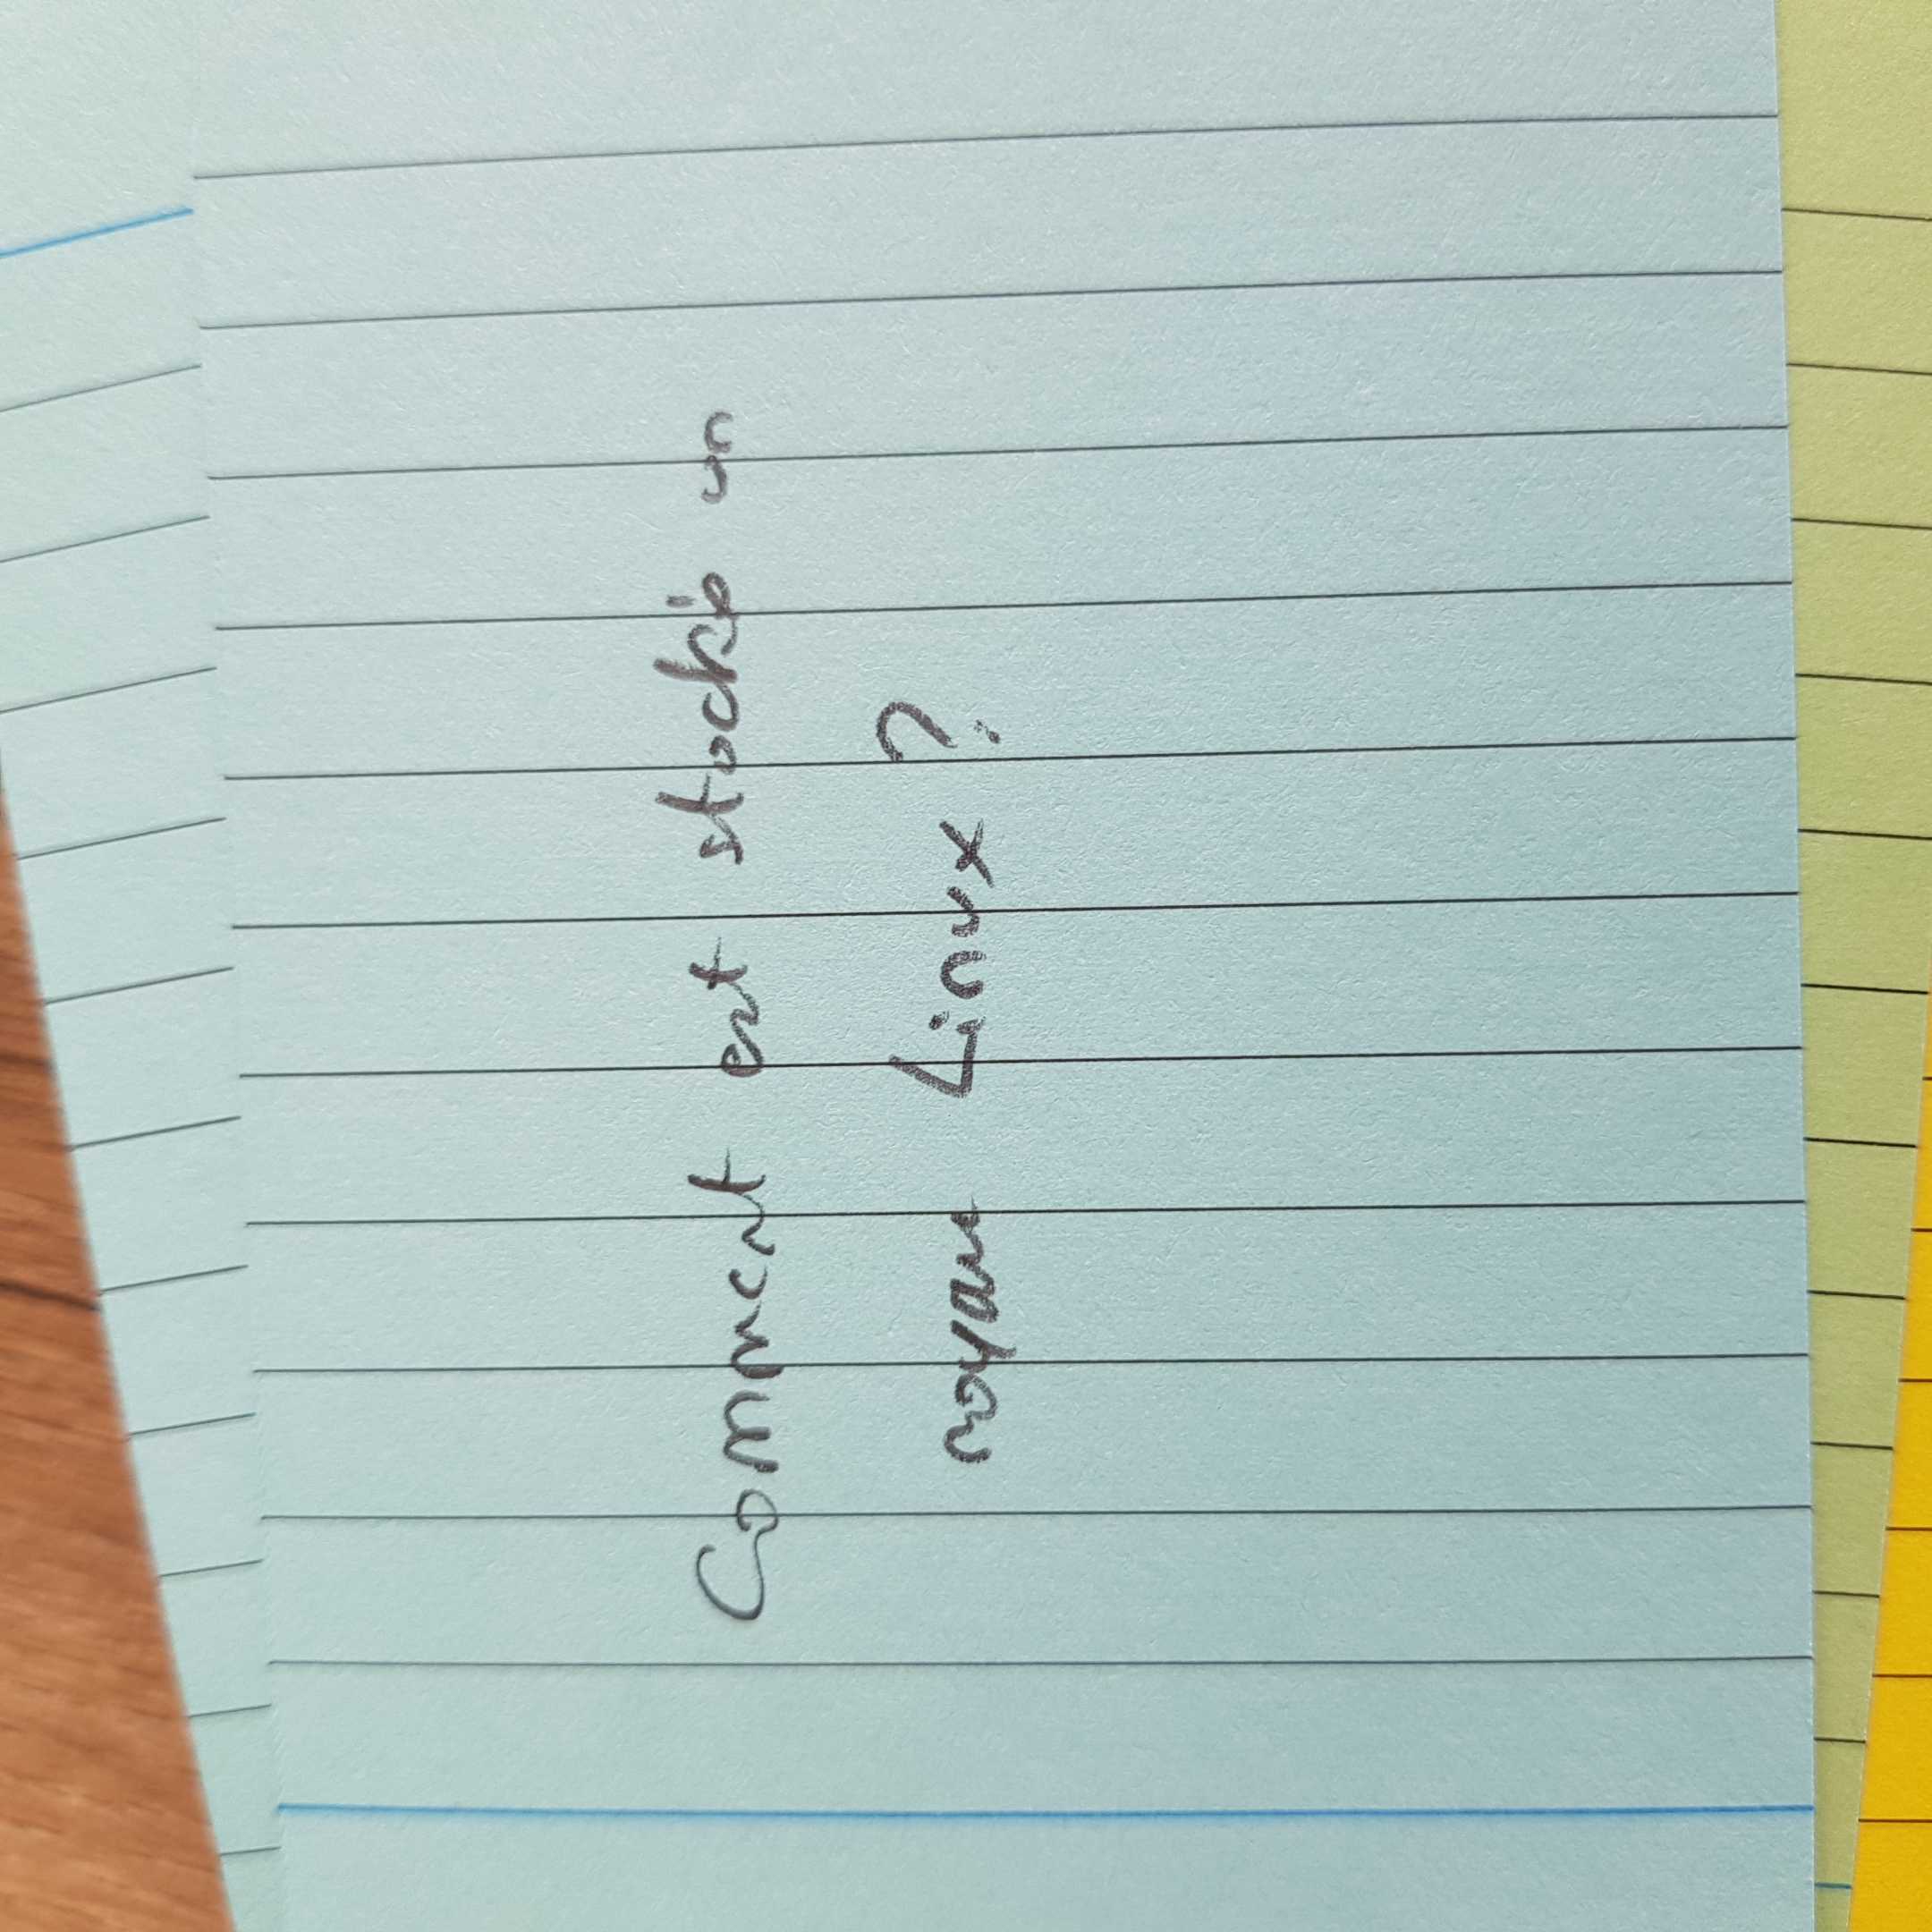 Comment est stocké un
noyau Linux ?